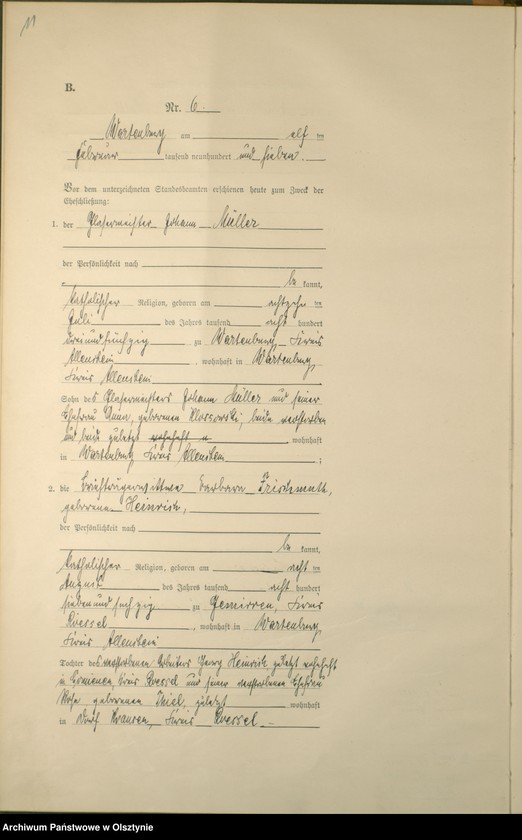 11
B.
Nr. 6.
Wartenburg am elf ten
Februar tausend neunhundert und sieben.
Vor dem unterzeichneten Standesbeamten erschienen heute zum Zweck der
Eheschließung:
1. der Glasermeister Johann Müller
der Persönlichkeit nach
be kannt,
katholischer Religion, geboren am achtzehn ten
Juli des Jahres tausend acht hundert
dreiundfünfzig zu Wartenburg, Kreis
Allenstein, wohnhaft in Wartenburg,
Kreis Allenstein
Sohn des Glasermeisters Johann Müller und seiner
Ehefrau Anna, geborenen Klossowski, beide verstorben
und beide zuletzt wohnhaft
in Wartenburg Kreis Allenstein;
2. die Barbara
geborene Heinrich,
der Persönlichkeit nach
be kannt,
katholischer Religion, geboren am acht ten
August des Jahres tausend acht hundert
siebenundsechzig zu Kreis
Roessel, wohnhaft in Wartenburg,
Kreis Allenstein
Tochter des verstorbenen Arbeiters Georg Heinrich, zuletzt wohnhaft
in Kreis Roessel und seiner verstorbenen Ehefrau
Rosa geborenen Thiel, zuletzt wohnhaft
in Dorf Krausen, Kreis Roessel
Archiwum Państwowe w Olsztynie